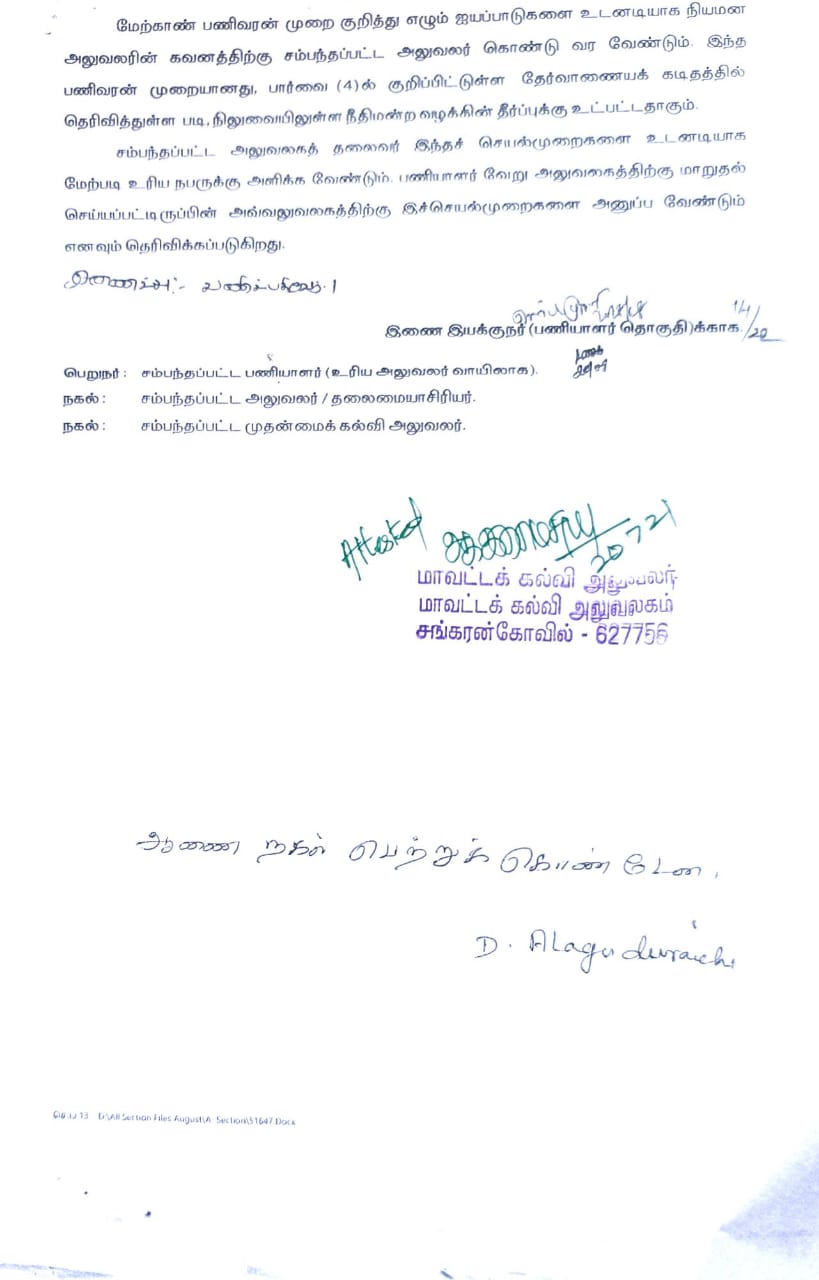 மேற்காண் பணிவரன் முறை குறித்து எழும் ஐயப்பாடுகளை உடனடியாக நியமன
அலுவலரின் கவனத்திற்கு சம்பந்தப்பட்ட அலுவலர் கொண்டு வர வேண்டும். இந்த
பணிவரன் முறையானது, பார்வை (4)ல் குறிப்பிட்டுள்ள தேர்வாணையக் கடிதத்தில்
தெரிவித்துள்ள படி, நிலுவையிலுள்ள நீதிமன்ற வழக்கின் தீர்ப்புக்கு உட்பட்டதாகும்.
சம்பந்தப்பட்ட அலுவலகத் தலைவர் இந்தச் செயல்முறைகளை உடனடியாக
மேற்படி உரிய நபருக்கு அளிக்க வேண்டும். பணியாளர் வேறு அலுவலகத்திற்கு மாறுதல்
செய்யப்பட்டிருப்பின் அவ்வலுவலகத்திற்கு இச்செயல்முறைகளை அனுப்ப வேண்டும்
எனவும் தெரிவிக்கப்படுகிறது.
இணைப்பு:-
இணை இயக்குநர் (பணியாளர் தொகுதி)க்காக.
பெறுநர் : சம்பந்தப்பட்ட பணியாளர் (உரிய அலுவலர் வாயிலாக).
நகல் : சம்பந்தப்பட்ட அலுவலர் / தலைமையாசிரியர்.
நகல் : சம்பந்தப்பட்ட முதன்மைக் கல்வி அலுவலர்.
Attested 20 7 21
மாவட்டக் கல்வி அலுவலர்
மாவட்டக் கல்வி அலுவலகம்
சங்கரன்கோவில் - 627756
ஆணை நகல் பெற்றுக் கொண்டேன.
D. Alagu duraichi
D:\All Section Files August\A Section\51647.Docx